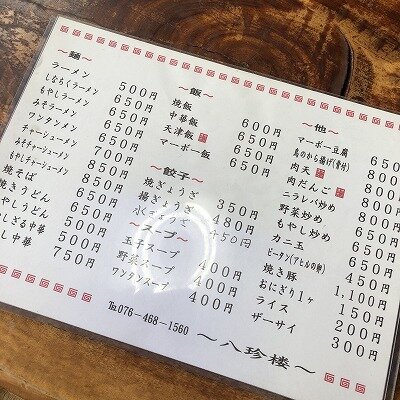 〜麺〜
ラーメン 500円
しなちくラーメン 650円
もやしラーメン 650円
みそラーメン 650円
ワンタンメン 700円
チャーシューメン 850円
みそチャーシューメン
もやしチャーシューメン 850円
焼そば
焼きうどん 650円
もやしうどん 650円
ざる中華 500円
し中華 750円
〜飯〜
焼飯 600円
中華飯 650円
天津飯 650円
マーボー飯 650円
〜餃子〜
焼きぎょうざ 350円
揚ぎょうざ 480円
水ぎょうざ 450円
〜スープ〜
玉子スープ 400円
野菜スープ 400円
ワンタンスープ 400円
〜他〜
マーボー豆腐 650
鳥のから揚げ(骨付)
肉天
肉だんご
ニラレバ炒め
野菜炒め
もやし炒め
カニ玉
ピータン(アヒルの卵)
焼き豚
おにぎり1ヶ
ライス
ザーサイ
650円
450円
1,100円
150円
200円
300円
℡076-468-1560
〜八珍楼〜